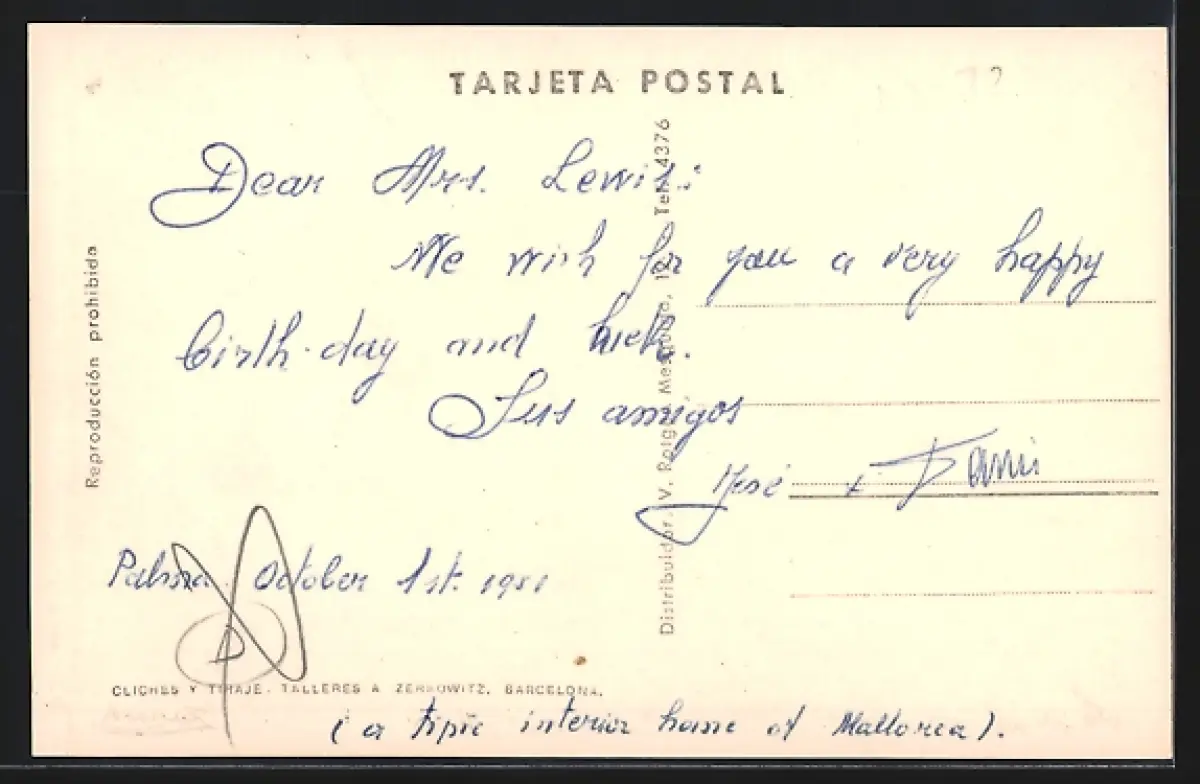 TARJETA POSTAL
Dear Mrs. Lewis:
We wish for you a very happy
birth-day and luck.
Sus amigos
José
Palma. October 1st.
CLICHES Y TIRAJE. TALLERES A ZERKOWITZ. BARCELONA.
( a tipic interior home of Mallorca ).
Reproducción prohibida
Distribuidor: V. Roig. 12. Tel. 4376